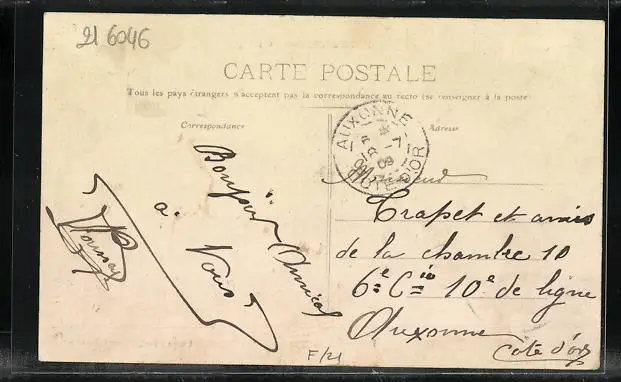 216046
CARTE POSTALE
Tous les pays étrangers n'acceptent pas la correspondance au recto (se renseigner à la poste)
Correspondance
Adresse
AUXONNE
18 -7
09
CÔTE D'OR
Bonjour
Amical
à
Vous
Monsieur
Trapet et amis
de la chambre 10
6e Cie 10e de ligne
Auxonne
Côte d'or
F/21